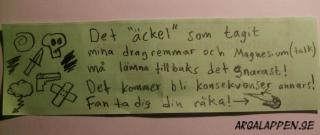 Det "äckel" som tagit
mina dragremmar och Magnesium (talk)
må lämna tillbaks det snarast!
Det kommer bli konsekvenser annars!
Fan ta dig din råka! →
ARGALAPPEN.SE